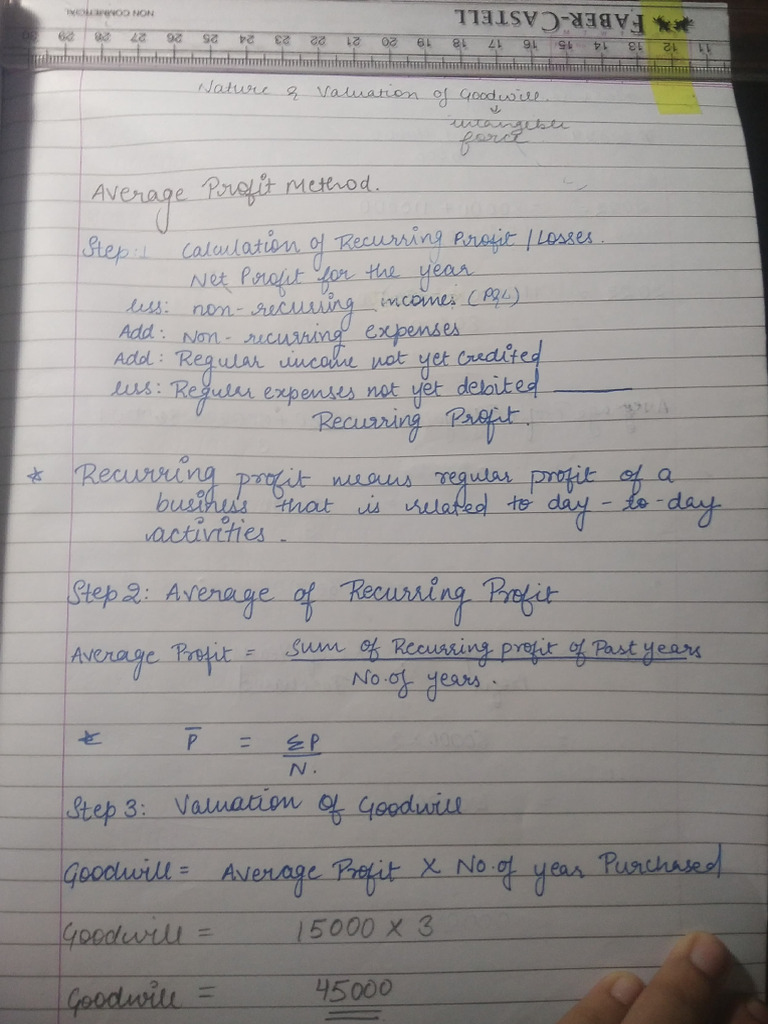 NON COMMERCIAL
FABER-CASTELL
11 12 13 14 15 16 17 18 19 20 21 22 23 24 25 26 27 28 29 30
Nature & Valuation of Goodwill.
intangible
force
Average Profit Method.
Step:1 Calculation of Recurring Profit / Losses.
Net Profit for the year
less: non-recurring incomes (P&L)
Add: Non-recurring expenses
Add: Regular income not yet credited
less: Regular expenses not yet debited
Recurring Profit.
* Recurring profit means regular profit of a
business that is related to day-to-day
activities.
Step 2: Average of Recurring Profit
Average Profit = Sum of Recurring profit of Past years
No. of years.
* P̅ = ΣP
N.
Step 3: Valuation of Goodwill
Goodwill = Average Profit X No. of year Purchased
Goodwill = 15000 X 3
Goodwill = 45000